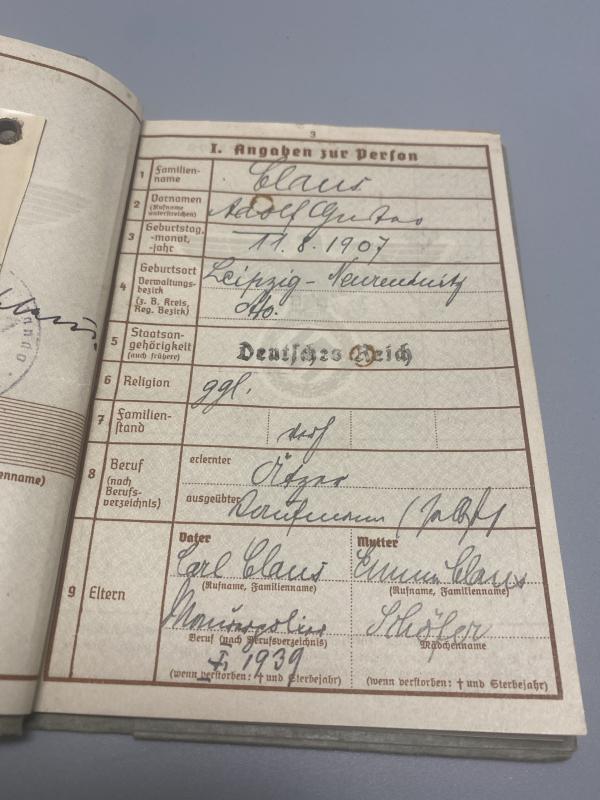 3
I. Angaben zur Person
1 Familien-
name
Claus
2 Vornamen
(Rufname
unterstreichen)
Adolf Gustav
3 Geburtstag,
-monat,
-jahr
11.8.1907
4 Geburtsort
Verwaltungs-
bezirk
(z. B. Kreis,
Reg. Bezirk)
Leipzig-Neureudnitz
5 Staatsan-
gehörigkeit
(auch frühere)
Deutsches Reich
6 Religion
ggl.
7 Familien-
stand
verh
8 Beruf
(nach
Berufs-
verzeichnis)
erlernter
Ätzer
ausgeübter
Kaufmann
9 Eltern
Vater
Carl Claus
(Rufname, Familienname)
Beruf (nach Berufsverzeichnis)
1939
(wenn verstorben: † und Sterbejahr)
Mutter
Emma Claus
(Rufname, Familienname)
Schäfer
Mädchenname
(wenn verstorben: † und Sterbejahr)
enname)